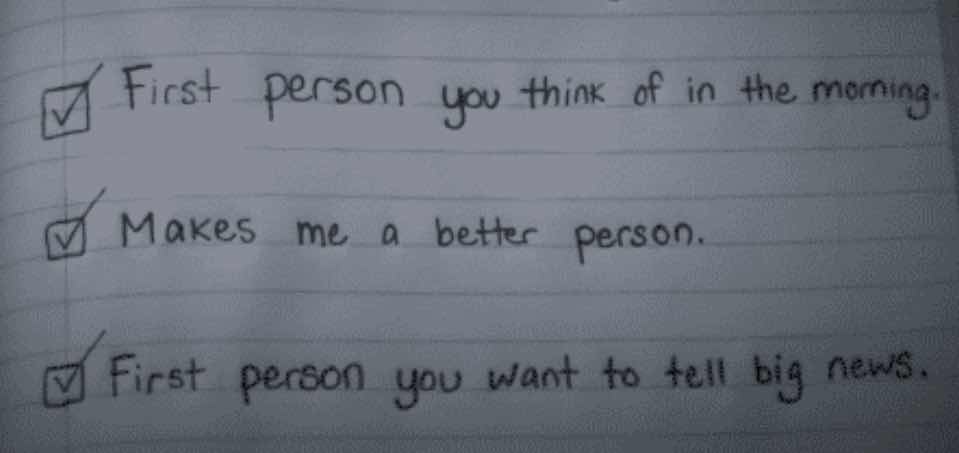 First person you think of in the morning.
Makes me a better person.
First person you want to tell big news.